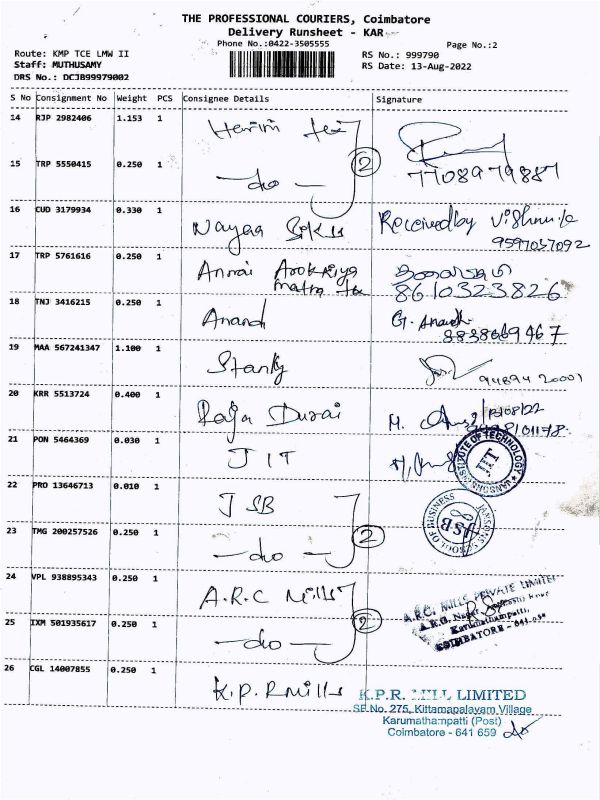 THE PROFESSIONAL COURIERS, Coimbatore
Delivery Runsheet - KAR
Phone No.:0422-3505555
Page No.:2
Route: KMP TCE LMW II
RS No.: 999790
Staff: MUTHUSAMY
RS Date: 13-Aug-2022
DRS No.: DCJB99979002
S No Consignment No Weight PCS Consignee Details Signature
14 RJP 2982406 1.153 1
15 TRP 5550415 0.250 1 -do- 2 7708979887
16 CUD 3179934 0.330 1 Received by
9597037092
17 TRP 5761616 0.250 1
8610323826
18 TNJ 3416215 0.250 1 Anand G. Anandh
8838669467
19 MAA 567241347 1.100 1
94894 20001
20 KRR 5513724 0.400 1 Raja Durai M.
21 PON 5464369 0.030 1 JIT
INSTITUTE OF TECHNOLOGY JIT
22 PRO 13646713 0.010 1 JSB
JANSONS SCHOOL OF BUSINESS JSB
23 TMG 200257526 0.250 1 -do- 2
24 VPL 938895343 0.250 1 A.R.C Mills
A.R.C. MILLS PRIVATE LIMITED
Karumathampatti,
COIMBATORE - 641
25 IXM 501935617 0.250 1 -do- 2
26 CGL 14007855 0.250 1 K.P.R Mills
K.P.R. MILL LIMITED
SF No. 275, Kittampalayam Village
Karumathampatti (Post)
Coimbatore - 641 659